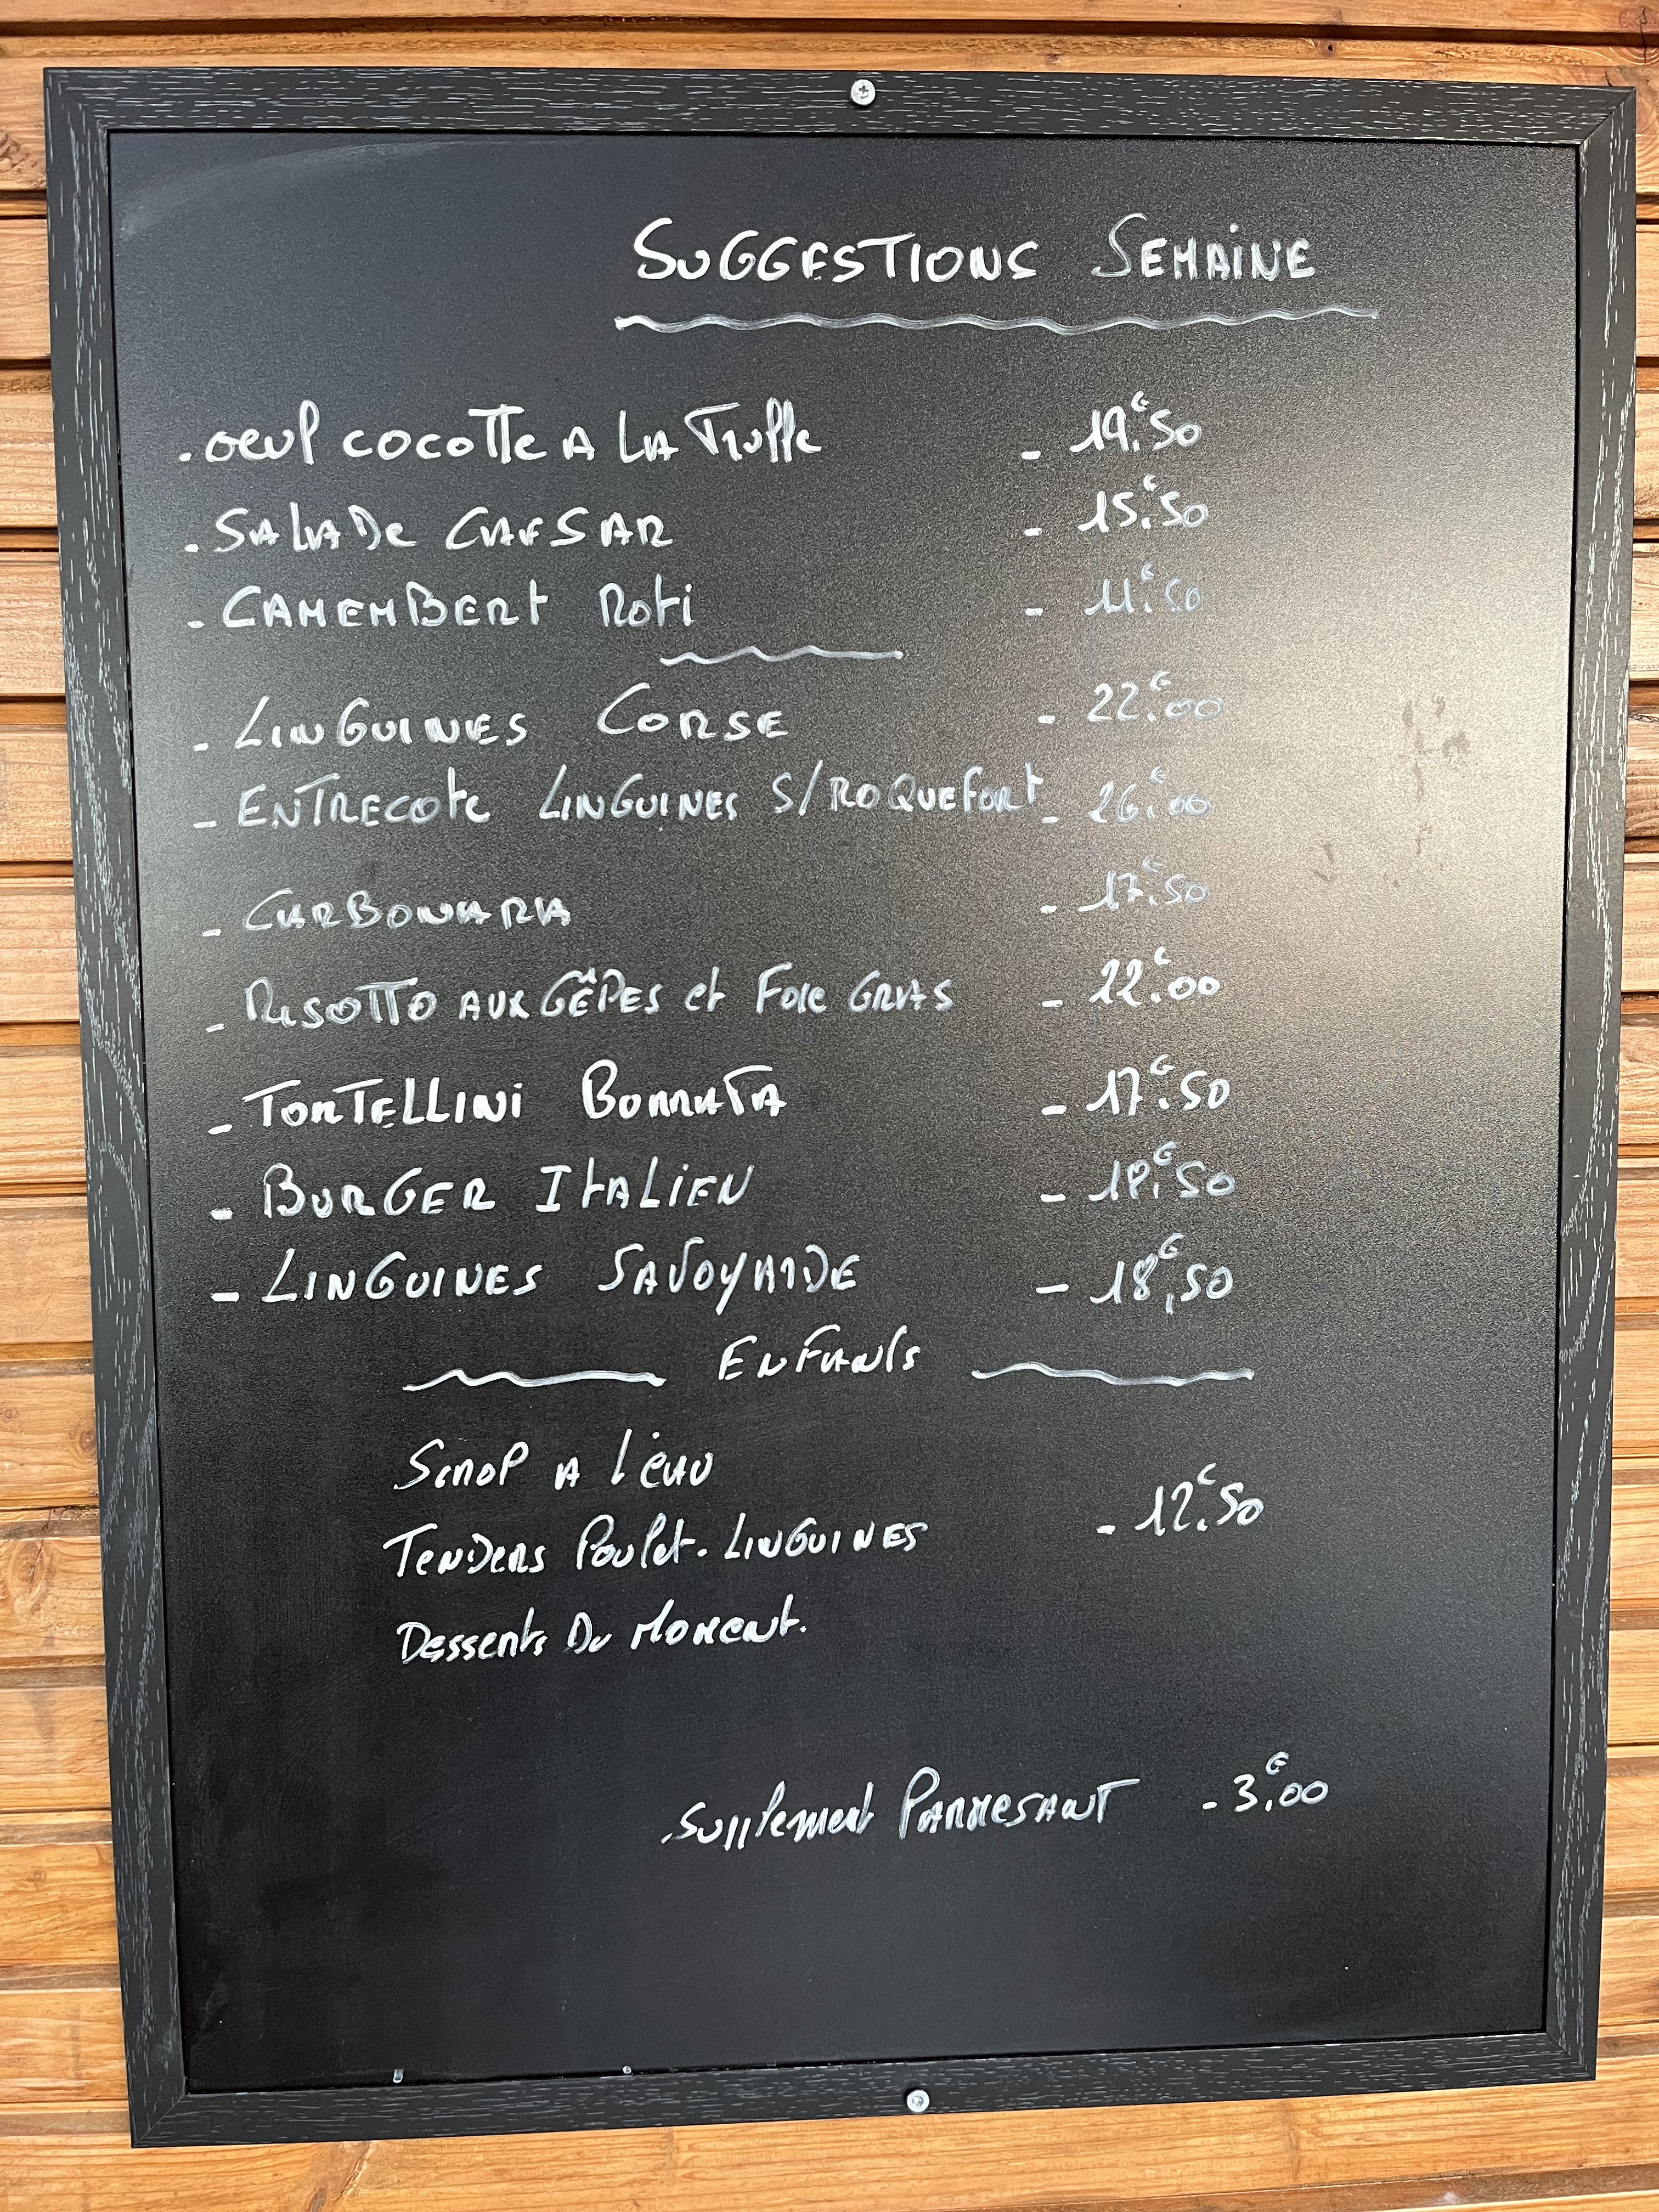 SUGGESTIONS SEMAINE
. oeuf cocotte A LA Truffe - 19.€50
. SALADE CAESAR - 15.€50
. CAMEMBERT Roti - 11.€50
- LINGUINES CORSE - 22.€00
- ENTRECOTE LINGUINES S/ROQUEFORT - 26.€00
- CARBONARA - 17.€50
- RISOTTO AUX CÊPES et FOIE GRAS - 22.€00
- TORTELLINI BURRATA - 17.€50
- BURGER ITALIEN - 18.€50
- LINGUINES SAVOYARDE - 18,€50
ENFANTS
SIROP A L'EAU
TENDERS Poulet. LINGUINES - 12.€50
Desserts Du Moment.
. Supplement PARMESANT - 3.€00